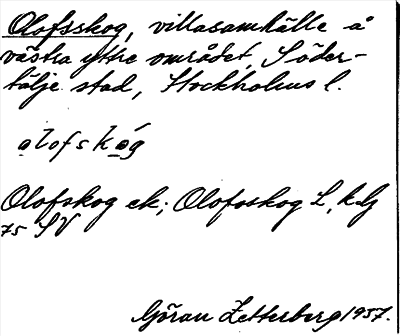 Olofsskog, villasamhälle å
västra yttre området, Söder-
tälje stad, Stockholms l.
olofskóg
Olofskog ek; Olofsskog L, kig
75 SV
Göran Zetterberg 1957.